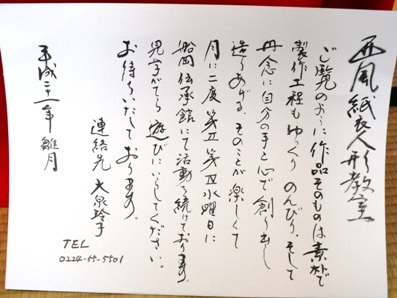 西風紙衣人形教室
ご覧のように作品そのものは素朴で
製作工程もゆっくり のんびり、そして
丹念に自分の手と心で創り出し
造りあげる、そのことが楽しくて
月に二度 第二 第四 水曜日に
船岡伝承館にて活動を続けております。
見学がてら 遊びにいらしてください。
お待ちいたしております。
平成二十一年 雛月
連絡先 大泉玲子
TEL
0224-55-5501